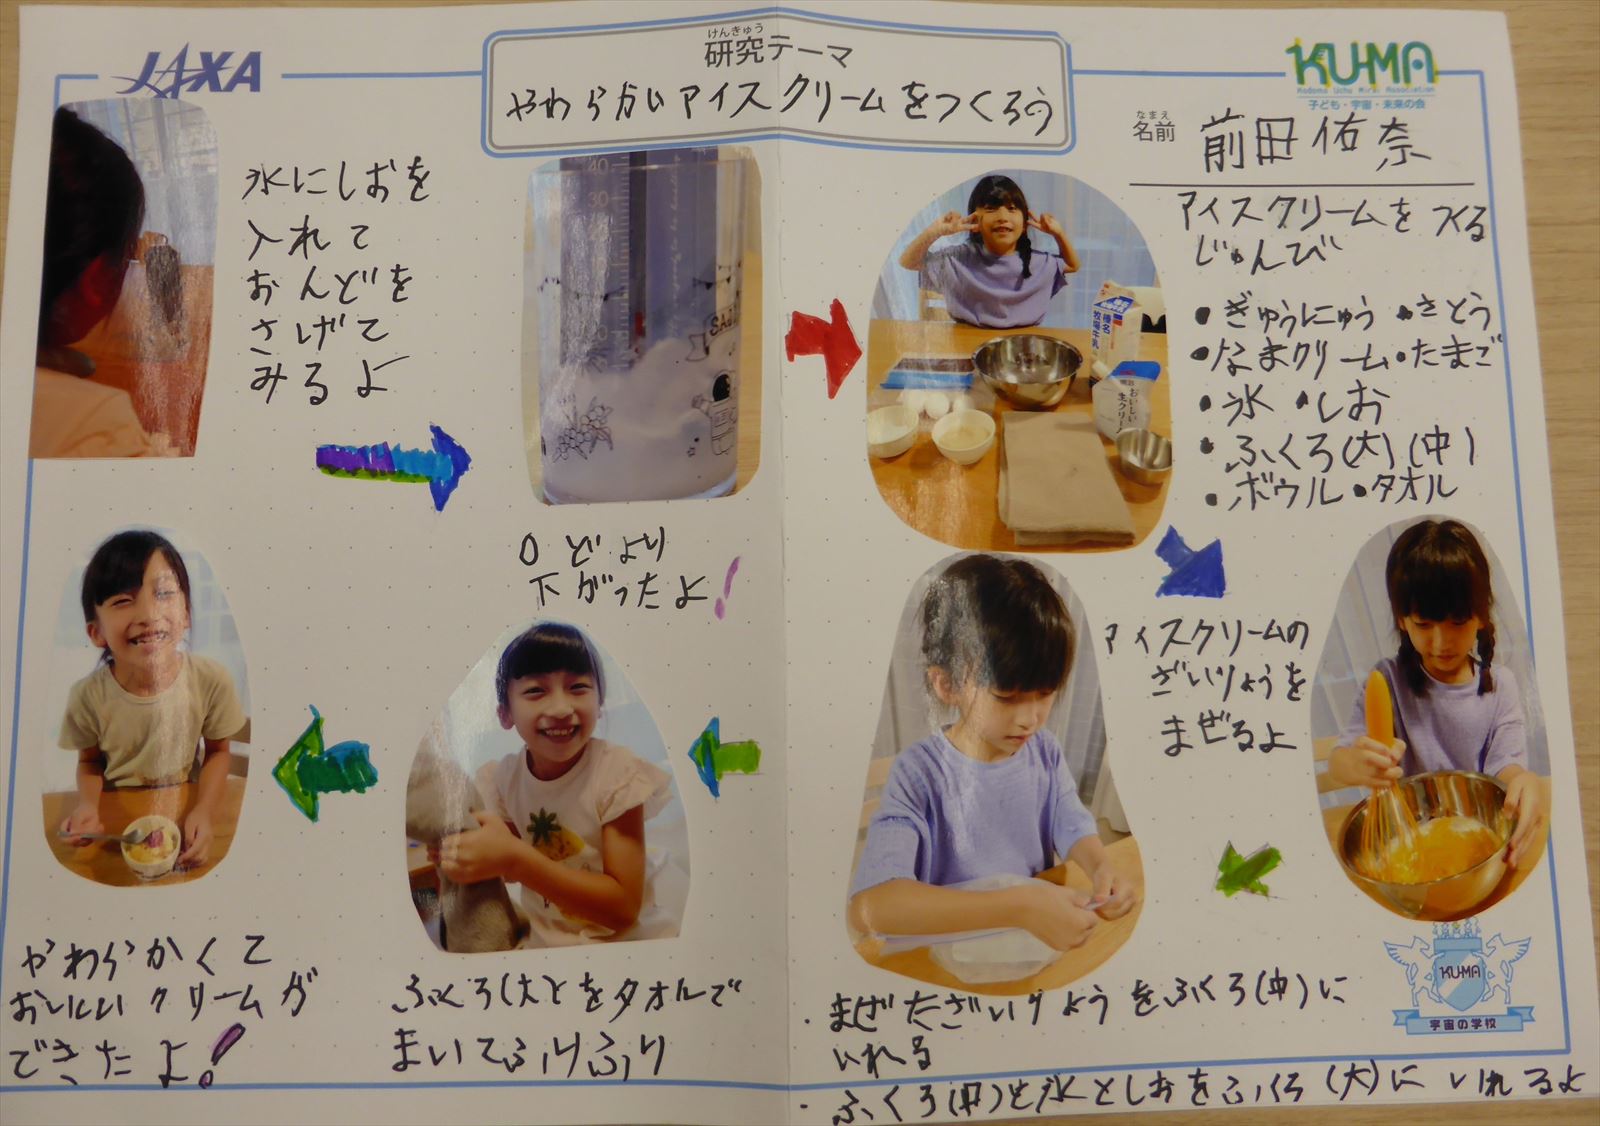 JAXA
けんきゅう
研究テーマ
やわらかいアイスクリームをつくろう
KU-MA
Kodomo Uchu Mirai Association
子ども・宇宙・未来の会
なまえ
名前
前田佑奈
氷にしおを
入れて
おんどを
さげて
みるよ
40
30
0どより
下がったよ!
アイスクリームをつくる
じゅんび
・ぎゅうにゅう・さとう
・なまクリーム・たまご
・氷・しお
・ふくろ(大)(中)
・ボウル・タオル
榛名
牧場牛乳
明治
おいしい
生クリーム
アイスクリームの
ざいりょうを
まぜるよ
・まぜたざいりょうをふくろ(中)に
いれる
・ふくろ(中)と氷としおをふくろ(大)にいれるよ
ふくろ(大)とをタオルで
まいてふりふり
やわらかくて
おいしいクリームが
できたよ!
KU-MA
宇宙の学校